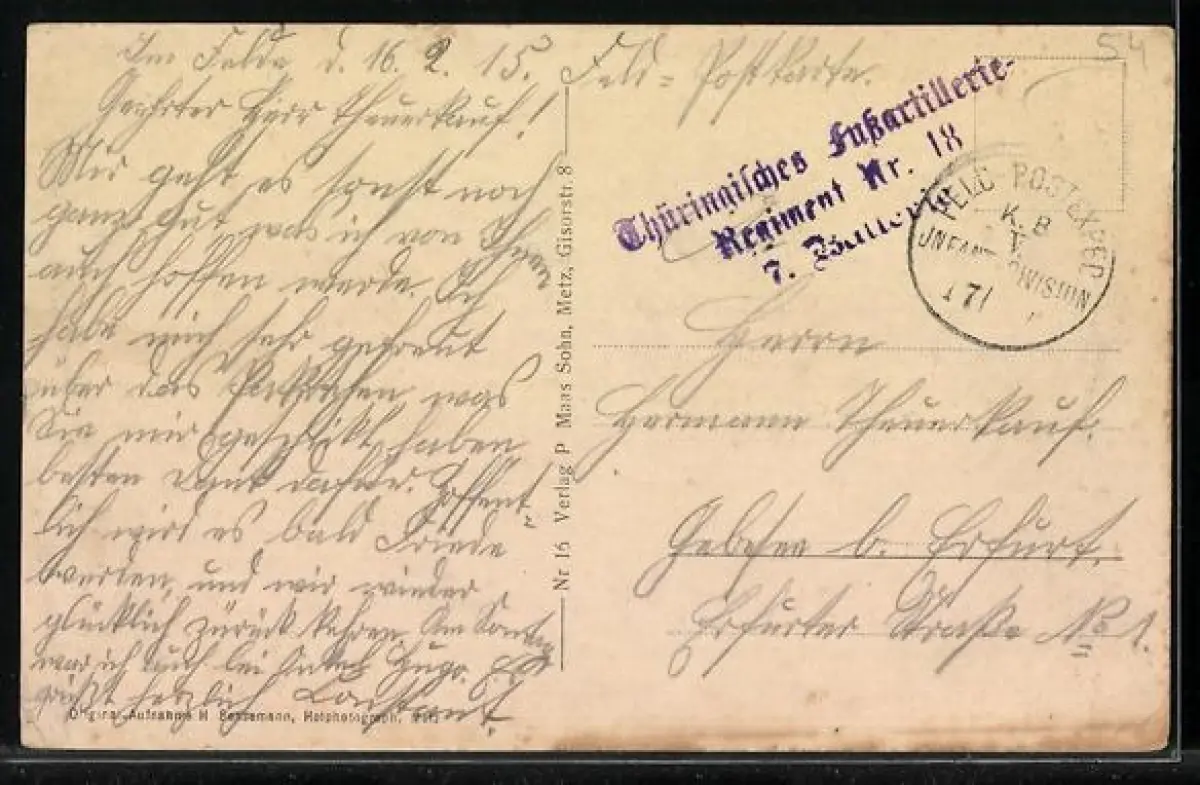 Im Felde d. 16. 2. 15.
Geehrter Herr Theuerkauf!
Mir geht es sonst noch
ganz gut was ich von Ihnen
auch hoffen werde. Ich
habe mich sehr gefreut
über das Päckchen was
Sie mir geschikt haben
besten Dank dafür. Hoffent-
lich wird es bald Friede
werden, und wir wieder
glücklich zurück kehren. Am Sontag
war ich auch bei Hugo. Es
grüßt herzlich
Original-Aufnahme H Hofphotograph, Metz
Nr 16 Verlag P Maas Sohn, Metz, Gisorstr. 8
Feld=Postkarte.
54
Thüringisches Fußartillerie-
Regiment Nr. 18
7. Batterie
FELD-POSTEXPED
K. B
V.
INFANT DIVISION
Herrn
Hermann Theuerkauf.
Gebesee b. Erfurt.
Erfurter Straße No 1.